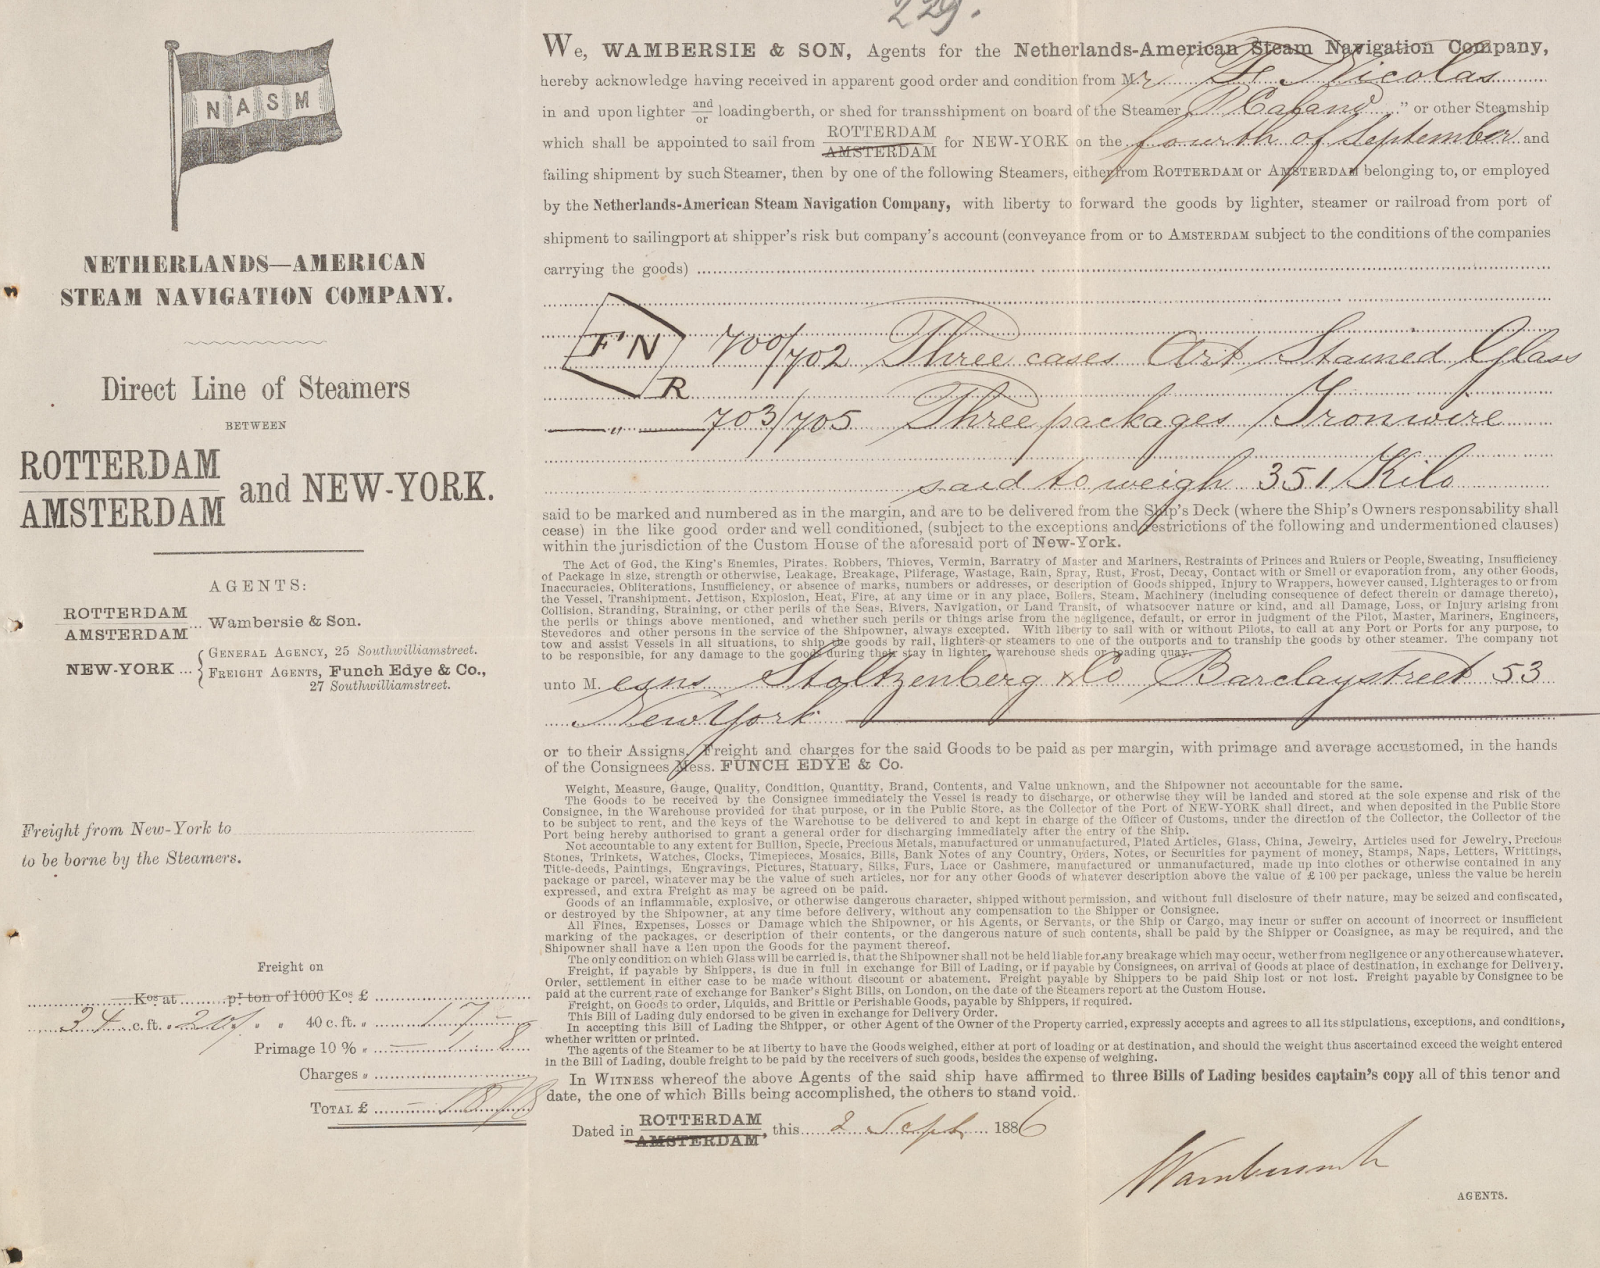 229.
NASM
NETHERLANDS—AMERICAN
STEAM NAVIGATION COMPANY.
Direct Line of Steamers
BETWEEN
ROTTERDAM
AMSTERDAM and NEW-YORK.
AGENTS:
ROTTERDAM
AMSTERDAM ... Wambersie & Son.
NEW-YORK ... { GENERAL AGENCY, 25 Southwilliamstreet.
FREIGHT AGENTS, Funch Edye & Co.,
27 Southwilliamstreet.
Freight from New-York to
to be borne by the Steamers.
Freight on
Kos at pr ton of 1000 Kos £
34 c. ft. 20/ „ „ 40 c. ft. „ — 17 —
Primage 10 % „ — 1 8
Charges „
TOTAL £ — 18/8
We, WAMBERSIE & SON, Agents for the Netherlands-American Steam Navigation Company,
hereby acknowledge having received in apparent good order and condition from Mr. Fs Nicolas
in and upon lighter and/or loadingberth, or shed for transshipment on board of the Steamer „ P Caland " or other Steamship
which shall be appointed to sail from ROTTERDAM/AMSTERDAM for NEW-YORK on the fourth of September and
failing shipment by such Steamer, then by one of the following Steamers, either from ROTTERDAM or AMSTERDAM belonging to, or employed
by the Netherlands-American Steam Navigation Company, with liberty to forward the goods by lighter, steamer or railroad from port of
shipment to sailingport at shipper's risk but company's account (conveyance from or to AMSTERDAM subject to the conditions of the companies
carrying the goods)
F N 700/702 Three cases Art Stained Glass
R
— „ — 703/705 Three packages Ironwire
said to weigh 351 Kilo
said to be marked and numbered as in the margin, and are to be delivered from the Ship's Deck (where the Ship's Owners responsability shall
cease) in the like good order and well conditioned, (subject to the exceptions and restrictions of the following and undermentioned clauses)
within the jurisdiction of the Custom House of the aforesaid port of New-York.
The Act of God, the King's Enemies, Pirates. Robbers, Thieves, Vermin, Barratry of Master and Mariners, Restraints of Princes and Rulers or People, Sweating, Insufficiency
of Package in size, strength or otherwise, Leakage, Breakage, Pilferage, Wastage, Rain, Spray, Rust, Frost, Decay, Contact with or Smell or evaporation from, any other Goods,
Inaccuracies, Obliterations, Insufficiency, or absence of marks, numbers or addresses, or description of Goods shipped, Injury to Wrappers, however caused, Lighterages to or from
the Vessel, Transhipment, Jettison, Explosion, Heat, Fire, at any time or in any place, Boilers, Steam, Machinery (including consequence of defect therein or damage thereto),
Collision, Stranding, Straining, or other perils of the Seas, Rivers, Navigation, or Land Transit, of whatsoever nature or kind, and all Damage, Loss, or Injury arising from
the perils or things above mentioned, and whether such perils or things arise from the negligence, default, or error in judgment of the Pilot, Master, Mariners, Engineers,
Stevedores and other persons in the service of the Shipowner, always excepted. With liberty to sail with or without Pilots, to call at any Port or Ports for any purpose, to
tow and assist Vessels in all situations, to ship the goods by rail, lighters or steamers to one of the outports and to tranship the goods by other steamer. The company not
to be responsible, for any damage to the goods during their stay in lighter, warehouse sheds or loading quay.
unto Messrs Stoltzenberg & Co Barclaystreet 53
New York
or to their Assigns. Freight and charges for the said Goods to be paid as per margin, with primage and average accustomed, in the hands
of the Consignees Mess. FUNCH EDYE & Co.
Weight, Measure, Gauge, Quality, Condition, Quantity, Brand, Contents, and Value unknown, and the Shipowner not accountable for the same.
The Goods to be received by the Consignee immediately the Vessel is ready to discharge, or otherwise they will be landed and stored at the sole expense and risk of the
Consignee, in the Warehouse provided for that purpose, or in the Public Store, as the Collector of the Port of NEW-YORK shall direct, and when deposited in the Public Store
to be subject to rent, and the keys of the Warehouse to be delivered to and kept in charge of the Officer of Customs, under the direction of the Collector, the Collector of the
Port being hereby authorised to grant a general order for discharging immediately after the entry of the Ship.
Not accountable to any extent for Bullion, Specie, Precious Metals, manufactured or unmanufactured, Plated Articles, Glass, China, Jewelry, Articles used for Jewelry, Precious
Stones, Trinkets, Watches, Clocks, Timepieces, Mosaics, Bills, Bank Notes of any Country, Orders, Notes, or Securities for payment of money, Stamps, Naps, Letters, Writtings,
Title-deeds, Paintings, Engravings, Pictures, Statuary, Silks, Furs, Lace or Cashmere, manufactured or unmanufactured, made up into clothes or otherwise contained in any
package or parcel, whatever may be the value of such articles, nor for any other Goods of whatever description above the value of £ 100 per package, unless the value be herein
expressed, and extra Freight as may be agreed on be paid.
Goods of an inflammable, explosive, or otherwise dangerous character, shipped without permission, and without full disclosure of their nature, may be seized and confiscated,
or destroyed by the Shipowner, at any time before delivery, without any compensation to the Shipper or Consignee.
All Fines, Expenses, Losses or Damage which the Shipowner, or his Agents, or Servants, or the Ship or Cargo, may incur or suffer on account of incorrect or insufficient
marking of the packages, or description of their contents, or the dangerous nature of such contents, shall be paid by the Shipper or Consignee, as may be required, and the
Shipowner shall have a lien upon the Goods for the payment thereof.
The only condition on which Glass will be carried is, that the Shipowner shall not be held liable for any breakage which may occur, wether from negligence or any other cause whatever.
Freight, if payable by Shippers, is due in full in exchange for Bill of Lading, or if payable by Consignees, on arrival of Goods at place of destination, in exchange for Delivery.
Order, settlement in either case to be made without discount or abatement. Freight payable by Shippers to be paid Ship lost or not lost. Freight payable by Consignee to be
paid at the current rate of exchange for Banker's Sight Bills, on London, on the date of the Steamers report at the Custom House.
Freight, on Goods to order, Liquids, and Brittle or Perishable Goods, payable by Shippers, if required.
This Bill of Lading duly endorsed to be given in exchange for Delivery Order.
In accepting this Bill of Lading the Shipper, or other Agent of the Owner of the Property carried, expressly accepts and agrees to all its stipulations, exceptions, and conditions,
whether written or printed.
The agents of the Steamer to be at liberty to have the Goods weighed, either at port of loading or at destination, and should the weight thus ascertained exceed the weight entered
in the Bill of Lading, double freight to be paid by the receivers of such goods, besides the expense of weighing.
In WITNESS whereof the above Agents of the said ship have affirmed to three Bills of Lading besides captain's copy all of this tenor and
date, the one of which Bills being accomplished, the others to stand void.
Dated in ROTTERDAM/AMSTERDAM, this 2 Sept 1886
AGENTS.